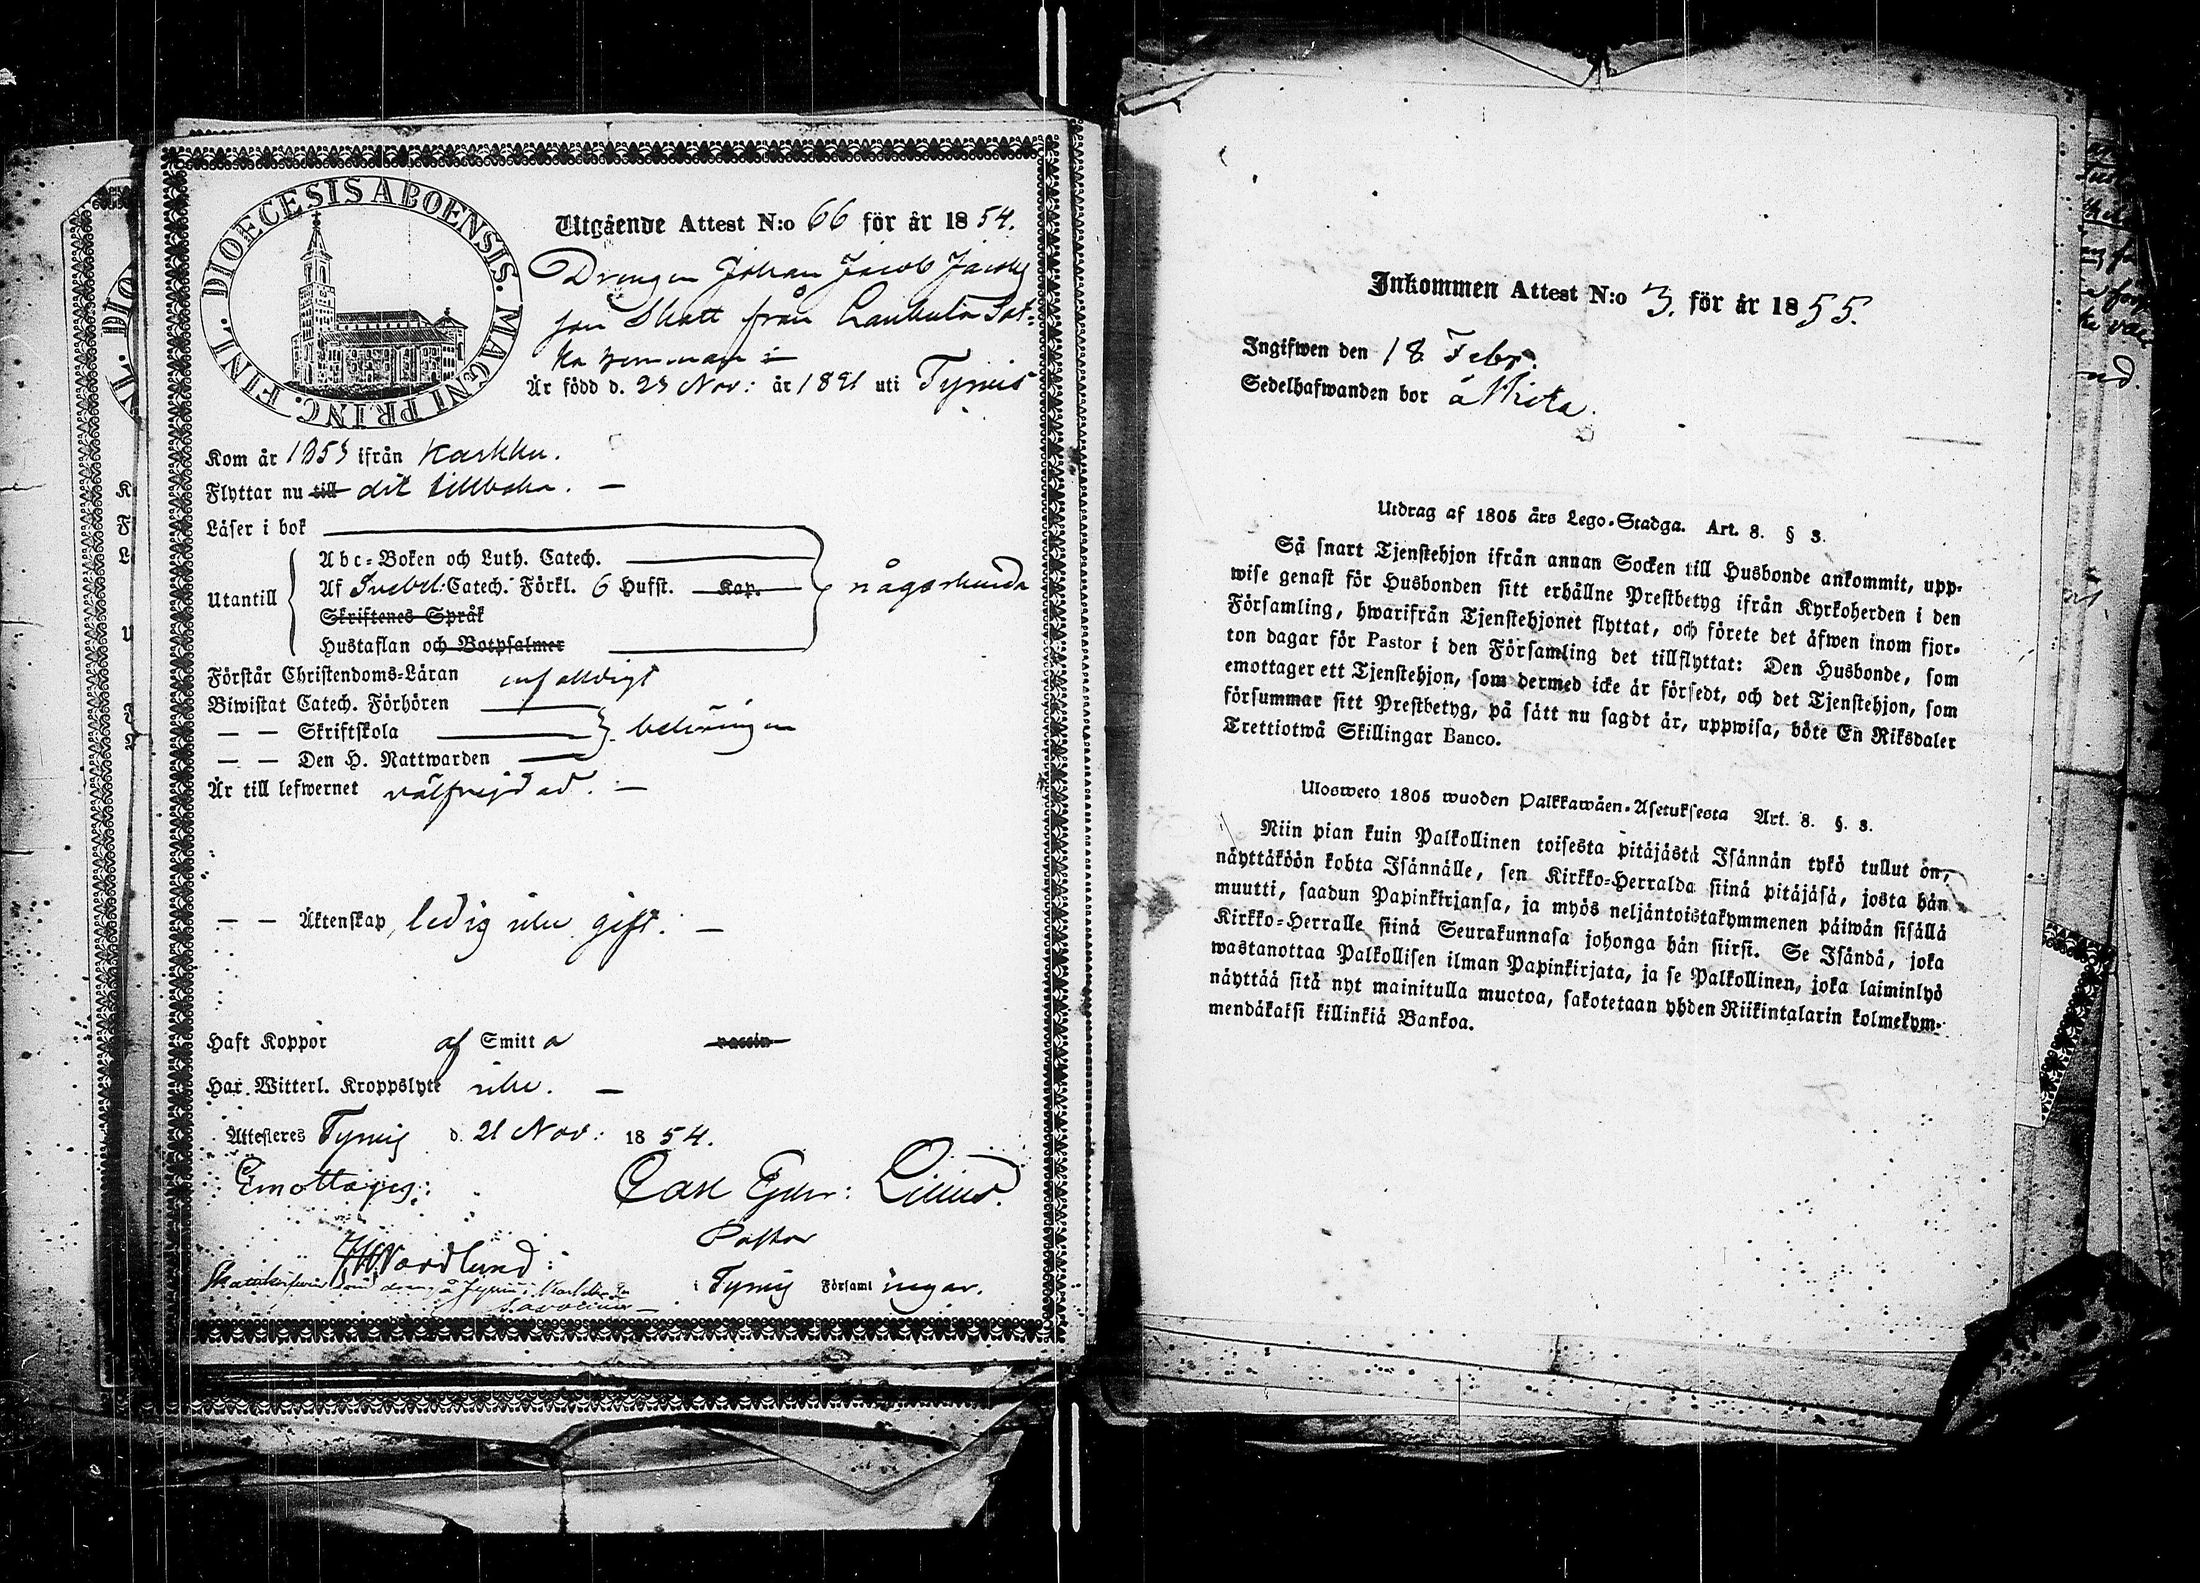 DIOECESIS ABOENSIS. MAGNI PRINC. FINL.
Utgående Attest N:o 66 för år 1854.
Drengen Johan Jacob Jacobs
son Skott från Laukula Sot-
ka hemman :-
Är född d. 23 Nov: år 1821 uti Tyrvis
Kom år 1853 ifrån Karkku.
Flyttar nu till dit tillbaka. —
Läser i bok
Utantill
Abc-Boken och Luth. Catech.
Af Svebel: Catech. Förkl. 6 Hufst. Kap.
någorlunda
Skriftenes Språk
Hustaflan och Botpsalmer
Förstår Christendoms-Läran enfaldigt
Biwistat Catech. Förhören
— — Skriftskola
behörigen
— — Den H. Nattwarden
Är till lefwernet välfrejdad. —
— — Äktenskap, ledig icke gift. —
Haft Koppor af Smitta vaccin
Har Witterl. Kroppslyte icke. —
Attesteres Tyrvis d. 21 Nov: 1854.
Emottages:
Carl Gust: Lilius.
Pastor
Nordlund:
i Tyrvis Församlingar.
Inkommen Attest N:o 3. för år 1855.
Ingifwen den 18 Febr.
Sedelhafwanden bor å
Utdrag af 1805 års Lego-Stadga. Art. 8. § 3.
Så snart Tjenstehjon ifrån annan Socken till Husbonde ankommit, upp-
wise genast för Husbonden sitt erhållne Prestbetyg ifrån Kyrkoherden i den
Församling, hwarifrån Tjenstehjonet flyttat, och förete det äfwen inom fjor-
ton dagar för Pastor i den Församling det tillflyttat: Den Husbonde, som
emottager ett Tjenstehjon, som dermed icke är försedt, och det Tjenstehjon, som
försummar sitt Prestbetyg, på sätt nu sagdt är, uppwisa, böte En Riksdaler
Trettiotwå Skillingar Banco.
Ulosweto 1805 wuoden Palkkawäen-Asetuksesta Art. 8. §. 3.
Niin pian kuin Palkollinen toisesta pitäjästä Isännän tykö tullut on,
näyttäköön kohta Isännälle, sen Kirkko-Herralda siinä pitäjäsä, josta hän
muutti, saadun Papinkirjansa, ja myös neljäntoistakymmenen päiwän sisällä
Kirkko-Herralle siinä Seurakunnasa johonga hän siirsi. Se Isändä, joka
wastanottaa Palkollisen ilman Papinkirjata, ja se Palkollinen, joka laiminlyö
näyttää sitä nyt mainitulla muotoa, sakotetaan yhden Riikintalarin kolmekym-
mendäkaksi killinkiä Bankoa.